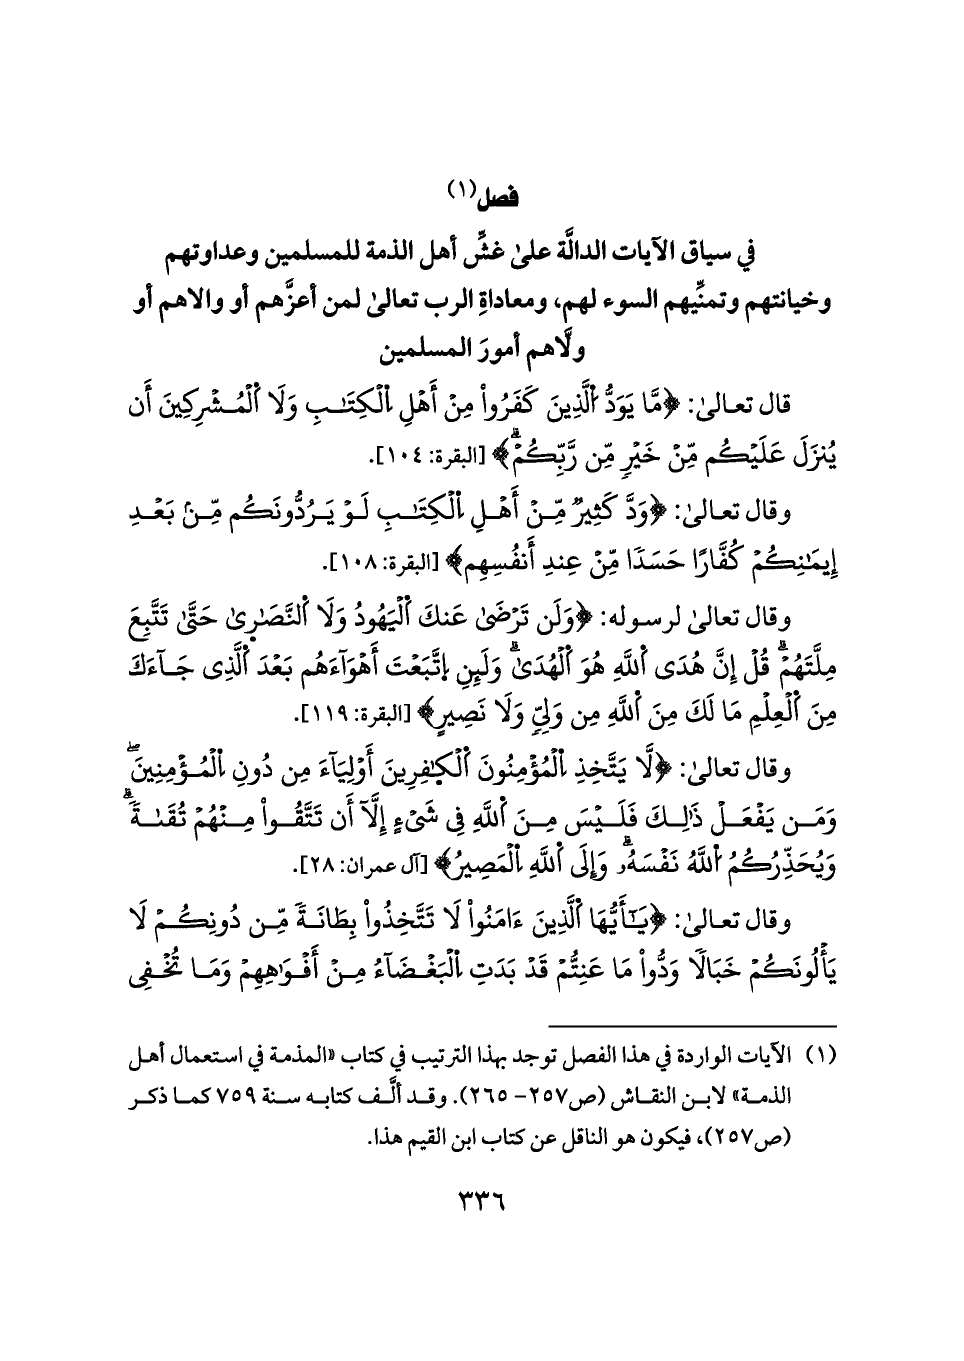 فصل(١)
في سياق الآيات الدالَّة علىٰ غشِّ أهل الذمة للمسلمين وعداوتهم
وخيانتهم وتمنِّيهم السوء لهم، ومعاداةِ الرب تعالىٰ لمن أعزَّهم أو والاهم أو
ولَّاهم أمورَ المسلمين
قال تعالىٰ: ﴿مَّا يَوَدُّ اُ۬لَّذِينَ كَفَرُواْ مِنْ أَهْلِ اِ۬لْكِتَٰبِ وَلَا اَ۬لْمُشْرِكِينَ أَن
يُنزَلَ عَلَيْكُم مِّنْ خَيْرٖ مِّن رَّبِّكُمْۗ﴾ [البقرة: ١٠٤].
وقال تعالىٰ: ﴿وَدَّ كَثِيرٞ مِّنْ أَهْلِ اِ۬لْكِتَٰبِ لَوْ يَرُدُّونَكُم مِّنۢ بَعْدِ
إِيمَٰنِكُمْ كُفَّارًا حَسَدٗا مِّنْ عِندِ أَنفُسِهِم﴾ [البقرة: ١٠٨].
وقال تعالىٰ لرسوله: ﴿وَلَن تَرْضَىٰ عَنكَ اَ۬لْيَهُودُ وَلَا اَ۬لنَّصَٰرِىٰ حَتَّىٰ تَتَّبِعَ
مِلَّتَهُمْۗ قُلْ إِنَّ هُدَى اَ۬للَّهِ هُوَ اَ۬لْهُدَىٰۗ وَلَئِنِ اِ۪تَّبَعْتَ أَهْوَآءَهُم بَعْدَ اَ۬لَّذِى جَآءَكَ
مِنَ اَ۬لْعِلْمِ مَا لَكَ مِنَ اَ۬للَّهِ مِن وَلِيّٖ وَلَا نَصِيرٍ﴾ [البقرة: ١١٩].
وقال تعالىٰ: ﴿لَّا يَتَّخِذِ اِ۬لْمُؤْمِنُونَ اَ۬لْكٰ۪فِرِينَ أَوْلِيَآءَ مِن دُونِ اِ۬لْمُؤْمِنِينَۖ
وَمَن يَفْعَلْ ذَٰلِكَ فَلَيْسَ مِنَ اَ۬للَّهِ فِى شَىْءٍ إِلَّآ أَن تَتَّقُواْ مِنْهُمْ تُقَىٰةٗۗ
وَيُحَذِّرُكُمُ اُ۬للَّهُ نَفْسَهُۥۗ وَإِلَى اَ۬للَّهِ اِ۬لْمَصِيرُ﴾ [آل عمران: ٢٨].
وقال تعالىٰ: ﴿يَٰٓأَيُّهَا اَ۬لَّذِينَ ءَامَنُواْ لَا تَتَّخِذُواْ بِطَانَةٗ مِّن دُونِكُمْ لَا
يَأْلُونَكُمْ خَبَالٗا وَدُّواْ مَا عَنِتُّمْ قَدْ بَدَتِ اِ۬لْبَغْضَآءُ مِنْ أَفْوَٰهِهِمْ وَمَا تُخْفِى
(١) الآيات الواردة في هذا الفصل توجد بهذا الترتيب في كتاب «المذمة في استعمال أهل
الذمة» لابن النقاش (ص٢٥٧- ٢٦٥). وقد ألَّف كتابه سنة ٧٥٩ كما ذكر
(ص٢٥٧)، فيكون هو الناقل عن كتاب ابن القيم هذا.
٣٣٦